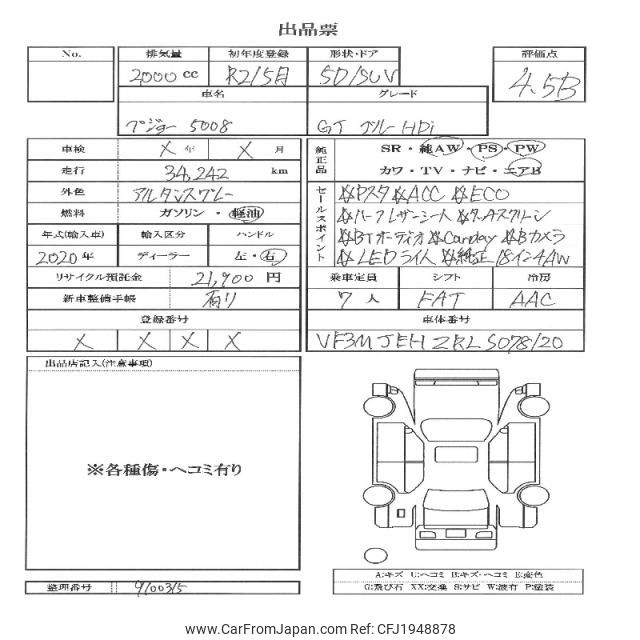 出品票
No. 排気量 初年度登録 形状・ドア 評価点
2000 cc R2/5月 5D/SUV 4.5B
車名 グレード
プジョー 5008 GT ブルーHDi
車検 X 年 X 月
走行 34,242 km
外色 アルタンスグレー
燃料 ガソリン・軽油
年式(輸入車) 輸入区分 ハンドル
2020 年 ディーラー 左・右
リサイクル預託金 21,900 円
新車整備手帳 有り
登録番号
X X X X
純正品 SR・純AW・PS・PW
カワ・TV・ナビ・エアB
セールスポイント
※Pスタ ※ACC ※ECO
※ハーフレザーシート ※
※BTオーディオ ※Carplay ※Bカメラ
※LEDライト ※純正18インチAW
乗車定員 シフト 冷房
7 人 FAT AAC
車体番号
VF3MJEHZRLS078120
出品店記入(注意事項)
※各種傷・ヘコミ有り
整理番号 9100315
A:キズ U:ヘコミ B:キズ・ヘコミ E:変色
G:飛び石 XX:交換 S:サビ W:波有 P:塗装
www.CarFromJapan.com | CFJ1948878